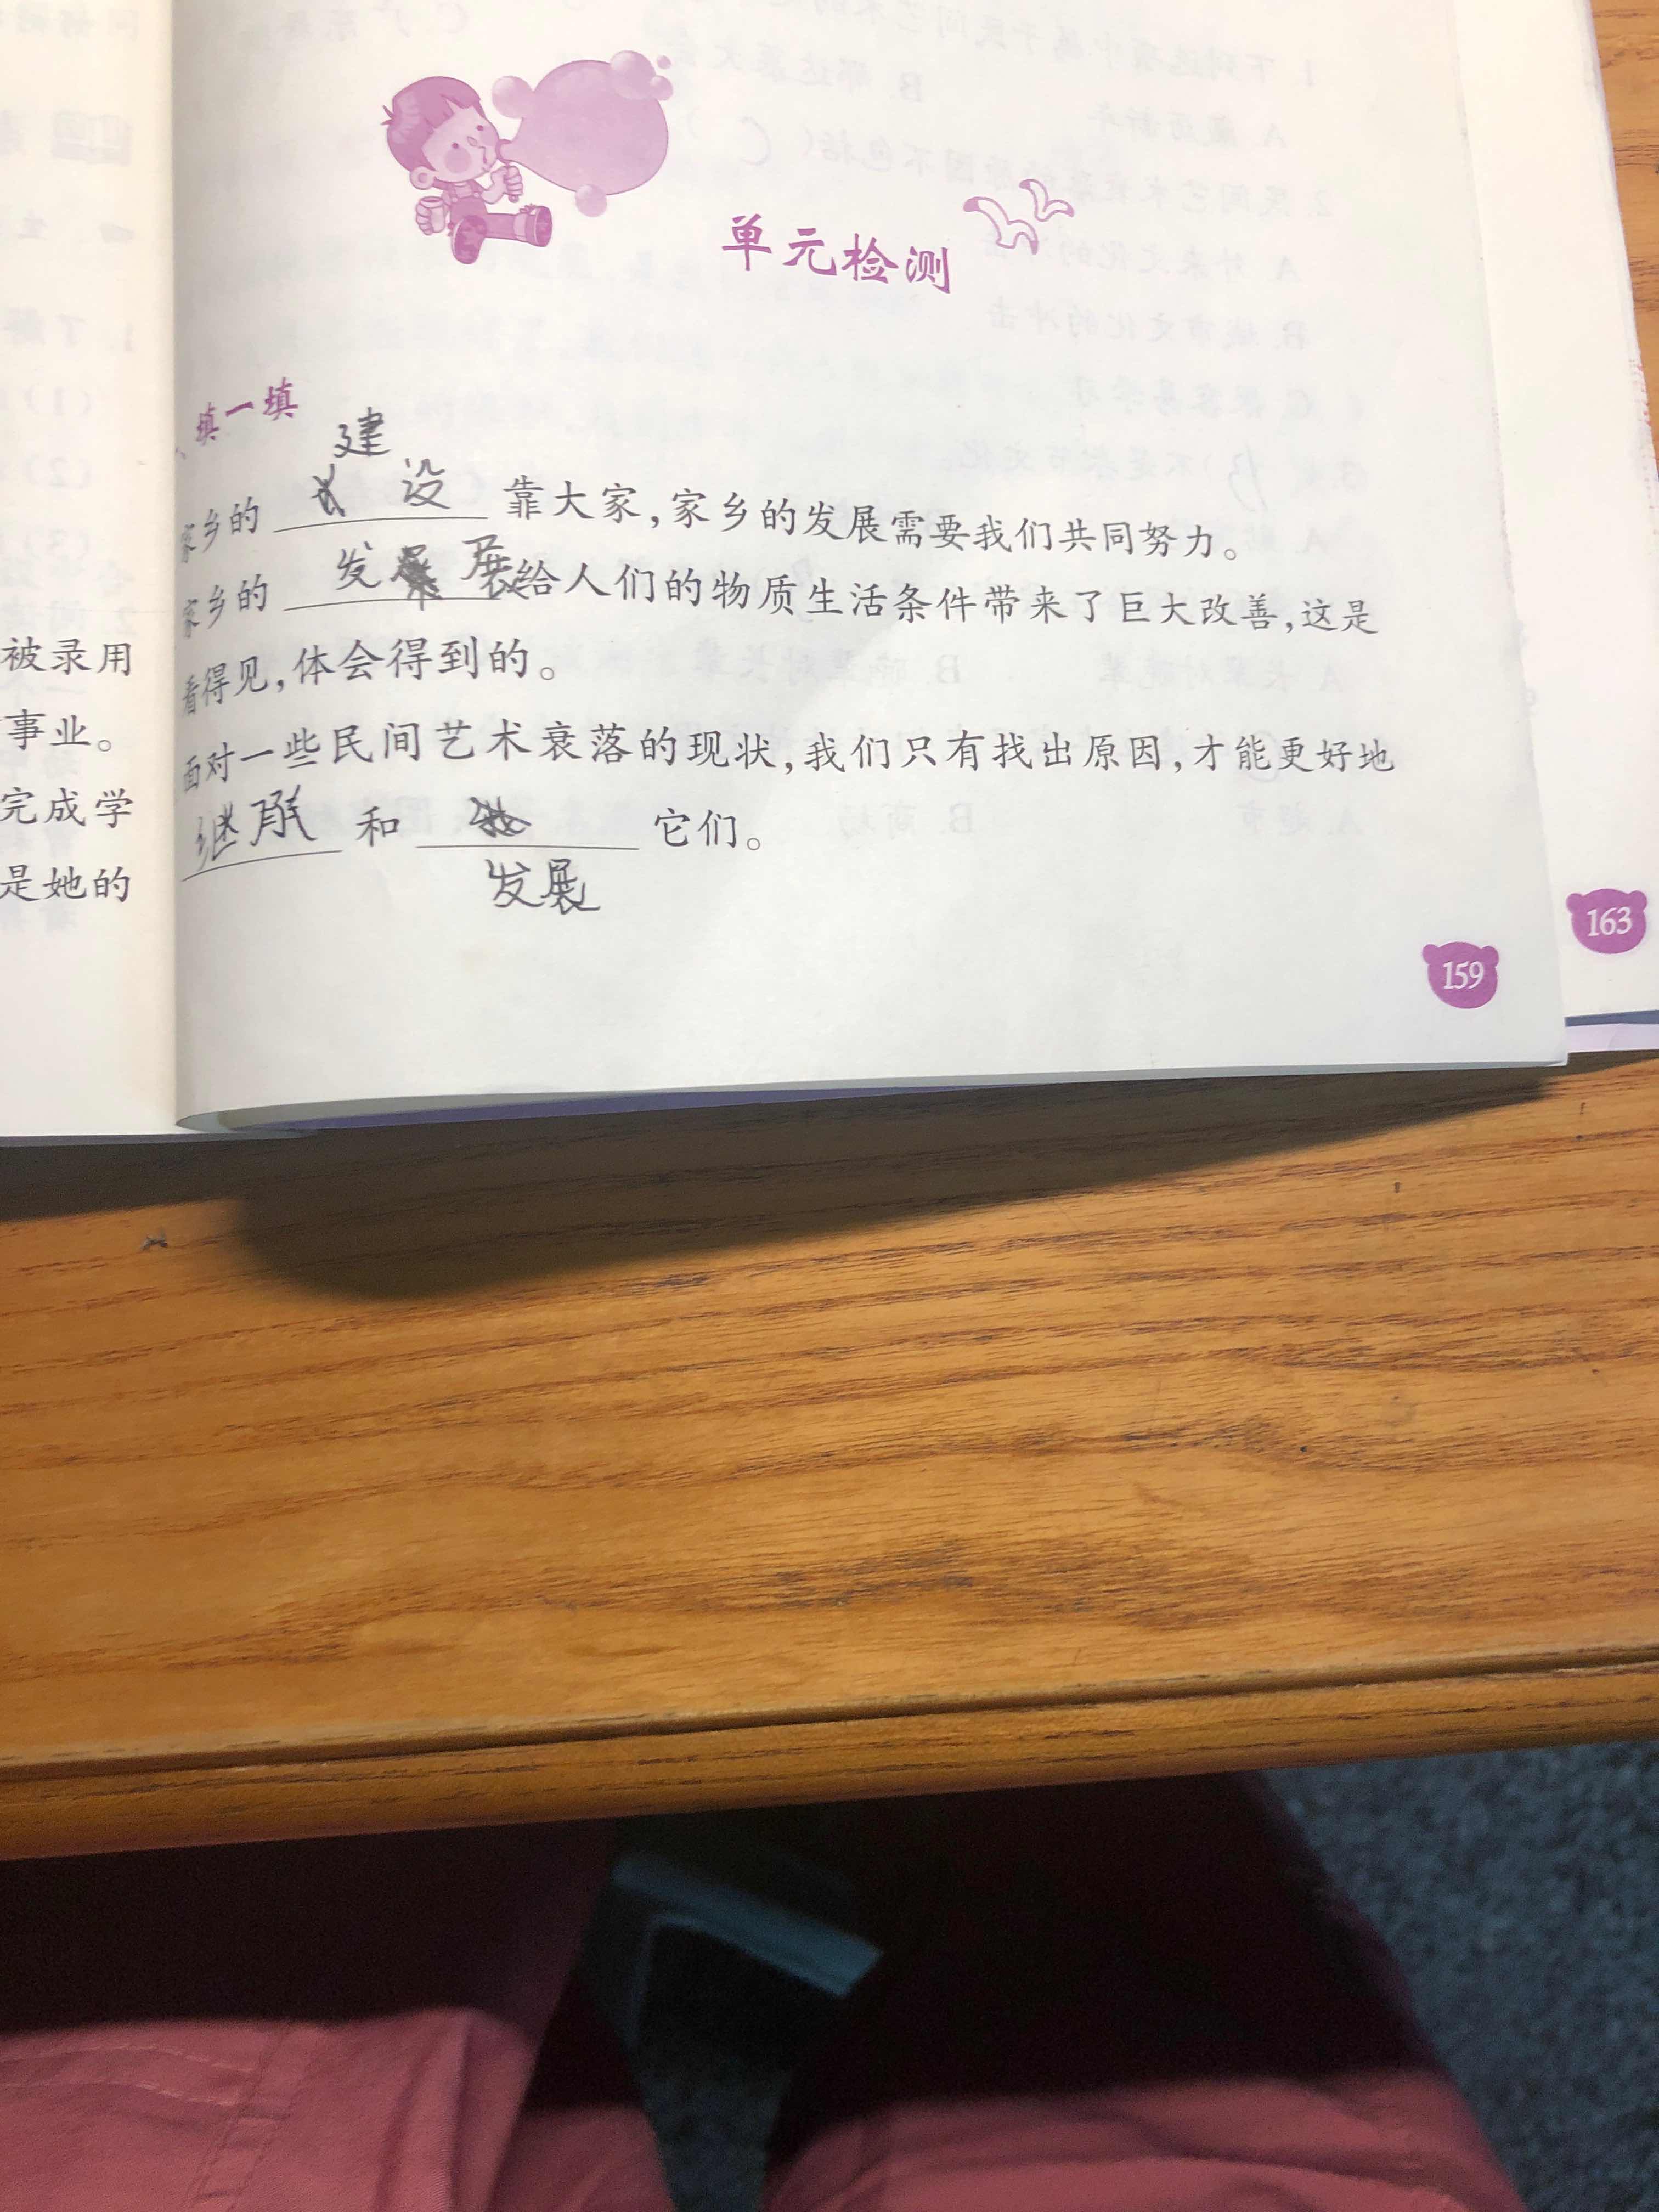 被录用
事业。
完成学
是她的
单元检测
填一填
家乡的 建设 靠大家,家乡的发展需要我们共同努力。
家乡的 发展 给人们的物质生活条件带来了巨大改善,这是
看得见,体会得到的。
面对一些民间艺术衰落的现状,我们只有找出原因,才能更好地
继承 和 发展 它们。
159
163